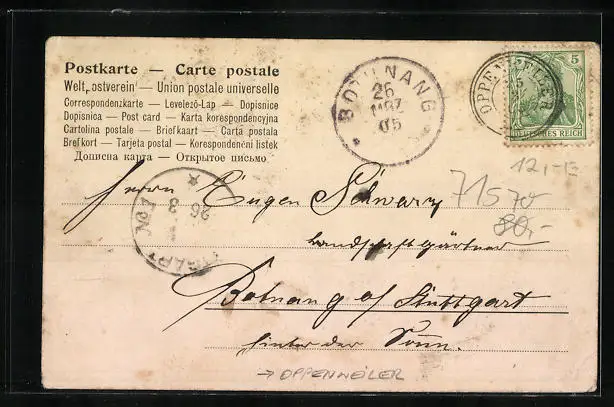 Postkarte — Carte postale
Weltpostverein — Union postale universelle
Correspondenzkarte — Levelező-Lap — Dopisnice
Dopisnica — Post card — Karta korespondencyjna
Cartolina postale — Briefkaart — Carta postala
Brefkort — Tarjeta postal — Korespondenčni listek
Дописна карта — Открытое письмо
BOTHNANG
26
MRZ
05
OPPENWEILER
5
DEUTSCHES REICH
12,-
71570
80,-
26 3
No 1
Herrn Eugen Schwarz
Landschaftsgärtner
Botnang a/ Stuttgart
hinter der Sonn.
→ OPPENWEILER